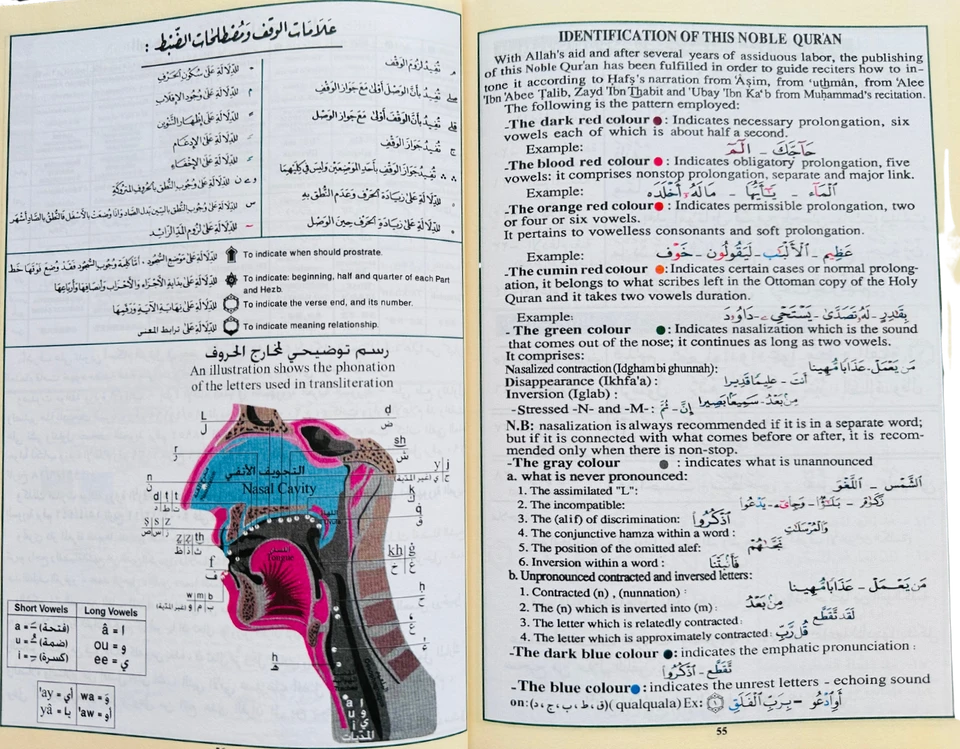 علامات الوقف ومصطلحات الضبط :
م تُفِيدُ لُزُومَ الوَقْف
صلى تُفِيدُ بأنَّ الوَصْلَ أَوْلَى مَعَ جَوَازِ الوَقْف
قلى تُفِيدُ بأنَّ الوَقْفَ أَوْلَى مَعَ جَوَازِ الوَصْل
ج تُفِيدُ جَوَازَ الوَقْفِ
∴ ∴ تُفِيدُ جَوَازَ الوَقْفِ بأَحَدِ المَوْضِعَيْنِ وليسَ في كِلَيْهِمَا
للدِّلالَةِ عَلَى زِيَادَةِ الحَرْفِ وَعَدَمِ النُّطْقِ بِه
للدِّلالَةِ عَلَى زِيَادَةِ الحَرْفِ حِينَ الوَصْل
للدِّلالَةِ عَلَى سُكُونِ الحَرْفِ
م للدِّلالَةِ عَلَى وُجُودِ الإقْلاب
للدِّلالَةِ عَلَى إِظْهَارِ التَّنْوِين
للدِّلالَةِ عَلَى الإدْغَام
للدِّلالَةِ عَلَى الإخْفَاء
للدِّلالَةِ عَلَى وُجُوبِ النُّطْقِ بالحُرُوفِ المَتْرُوكَة
س للدِّلالَةِ عَلَى وُجُوبِ النُّطْقِ بالسِّين بَدَل الصَّاد وَإذَا وُضِعَتْ بالأَسْفَل فَالنُّطْقُ بالصَّادِ أَشْهَر
للدِّلالَةِ عَلَى لُزُومِ المَدِّ الزَّائِد
To indicate when should prostrate.
للدِّلالَةِ عَلَى مَوْضِعِ السُّجُود ، أمَّا كَلِمَة وُجُوب السُّجُود فَقَدْ وُضِعَ فَوْقَهَا خَط
To indicate: beginning, half and quarter of each Part
and Hezb.
للدِّلالَةِ عَلَى بِدَايَةِ الأَجْزَاءِ وَالأَحْزَابِ وَأَنْصَافِهَا وَأَرْبَاعِهَا
To indicate the verse end, and its number.
للدِّلالَةِ عَلَى نِهَايَةِ الآيَةِ وَرَقْمِهَا
To indicate meaning relationship.
للدِّلالَةِ عَلَى تَرَابُط المعنى
رسم توضيحي لمخارج الحروف
An illustration shows the phonation
of the letters used in transliteration
L
ل
d
ض
sh
ش
r
ر
y j
n
ن
d t t
د ط ت
Ṣ S z
ص س ز
z z th
ظ ذ ث
f
ف
w m b
و م ب
k
ك
q
ق
kh ġ
خ غ
h
ح
h
ه
التجويف الأنفي
Nasal Cavity
اللسان
Tongue
a
u
i
Short Vowels Long Vowels
a = ـَ (فتحة) â = ا
u = ـُ (ضمة) ou = و
i = ـِ (كسرة) ee = ي
'ay = أَي wa = وَ
yâ = يا 'aw = أَو
IDENTIFICATION OF THIS NOBLE QUR'AN
With Allah's aid and after several years of assiduous labor, the publishing
of this Noble Qur'an has been fulfilled in order to guide reciters how to in-
tone it according to Ḥafṣ's narration from 'Āṣim, from 'uthmān, from 'Alee
'Ibn 'Abee Ṭalib, Zayd 'Ibn Thabit and 'Ubay 'Ibn Ka'b from Muḥammad's recitation.
The following is the pattern employed:
-The dark red colour : Indicates necessary prolongation, six
vowels each of which is about half a second.
Example: حَآجَّكَ - الٓمٓ
-The blood red colour : Indicates obligatory prolongation, five
vowels: it comprises nonstop prolongation, separate and major link.
Example: المَآء - يَٰٓأَيُّهَا - مَالَهُۥٓ أَخْلَدَهُ
-The orange red colour : Indicates permissible prolongation, two
or four or six vowels.
It pertains to vowelless consonants and soft prolongation.
Example: عَظِيم - الْأَلْبَٰب - لَيَقُولُون - خَوْف
-The cumin red colour : Indicates certain cases or normal prolong-
ation, it belongs to what scribes left in the Ottoman copy of the Holy
Quran and it takes two vowels duration.
Example: بِقَٰدِرٍ - لَهُۥ تَصَدَّىٰ - يَسْتَحْيِۦ - دَاوُۥد
- The green colour : Indicates nasalization which is the sound
that comes out of the nose; it continues as long as two vowels.
It comprises:
Nasalized contraction (Idgham bi ghunnah): مَن يَعْمَلْ - عَذَابًا مُّهِينًا
Disappearance (Ikhfa'a) : أَنتَ - عَلِيمًا قَدِيرًا
Inversion (Iglab) : مِنۢ بَعْدُ - سَمِيعًۢا بَصِيرًا
-Stressed -N- and -M- : إِنَّ - ثُمَّ
N.B: nasalization is always recommended if it is in a separate word;
but if it is connected with what comes before or after, it is recom-
mended only when there is non-stop.
-The gray colour : indicates what is unannounced
a. what is never pronounced:
1. The assimilated "L": الشَّمْس - اللَّغْو
2. The incompatible:
3. The (alif) of discrimination: اذْكُرُوا
4. The conjunctive hamza within a word : وَالْمُرْسَلَٰتِ
5. The position of the omitted alef:
6. Inversion within a word : فَأَنۢبَتْنَا
b. Unpronounced contracted and inversed letters:
1. Contracted (n) , (nunnation) : مَن يَعْمَلْ - عَذَابًا مُّهِينًا
2. The (n) which is inverted into (m) : مِنۢ بَعْدُ
3. The letter which is relatedly contracted : لَقَد تَّقَطَّعَ
4. The letter which is approximately contracted : قُل رَّبِّ
-The dark blue colour : indicates the emphatic pronunciation :
تَّقَطَّع - اذْكُرُوا
-The blue colour : indicates the unrest letters - echoing sound
on: (ق، ط، ب، ج، د) ( qualquala) Ex: أَوِ ادْعُو - بِرَبِّ الْفَلَقِ ١
55